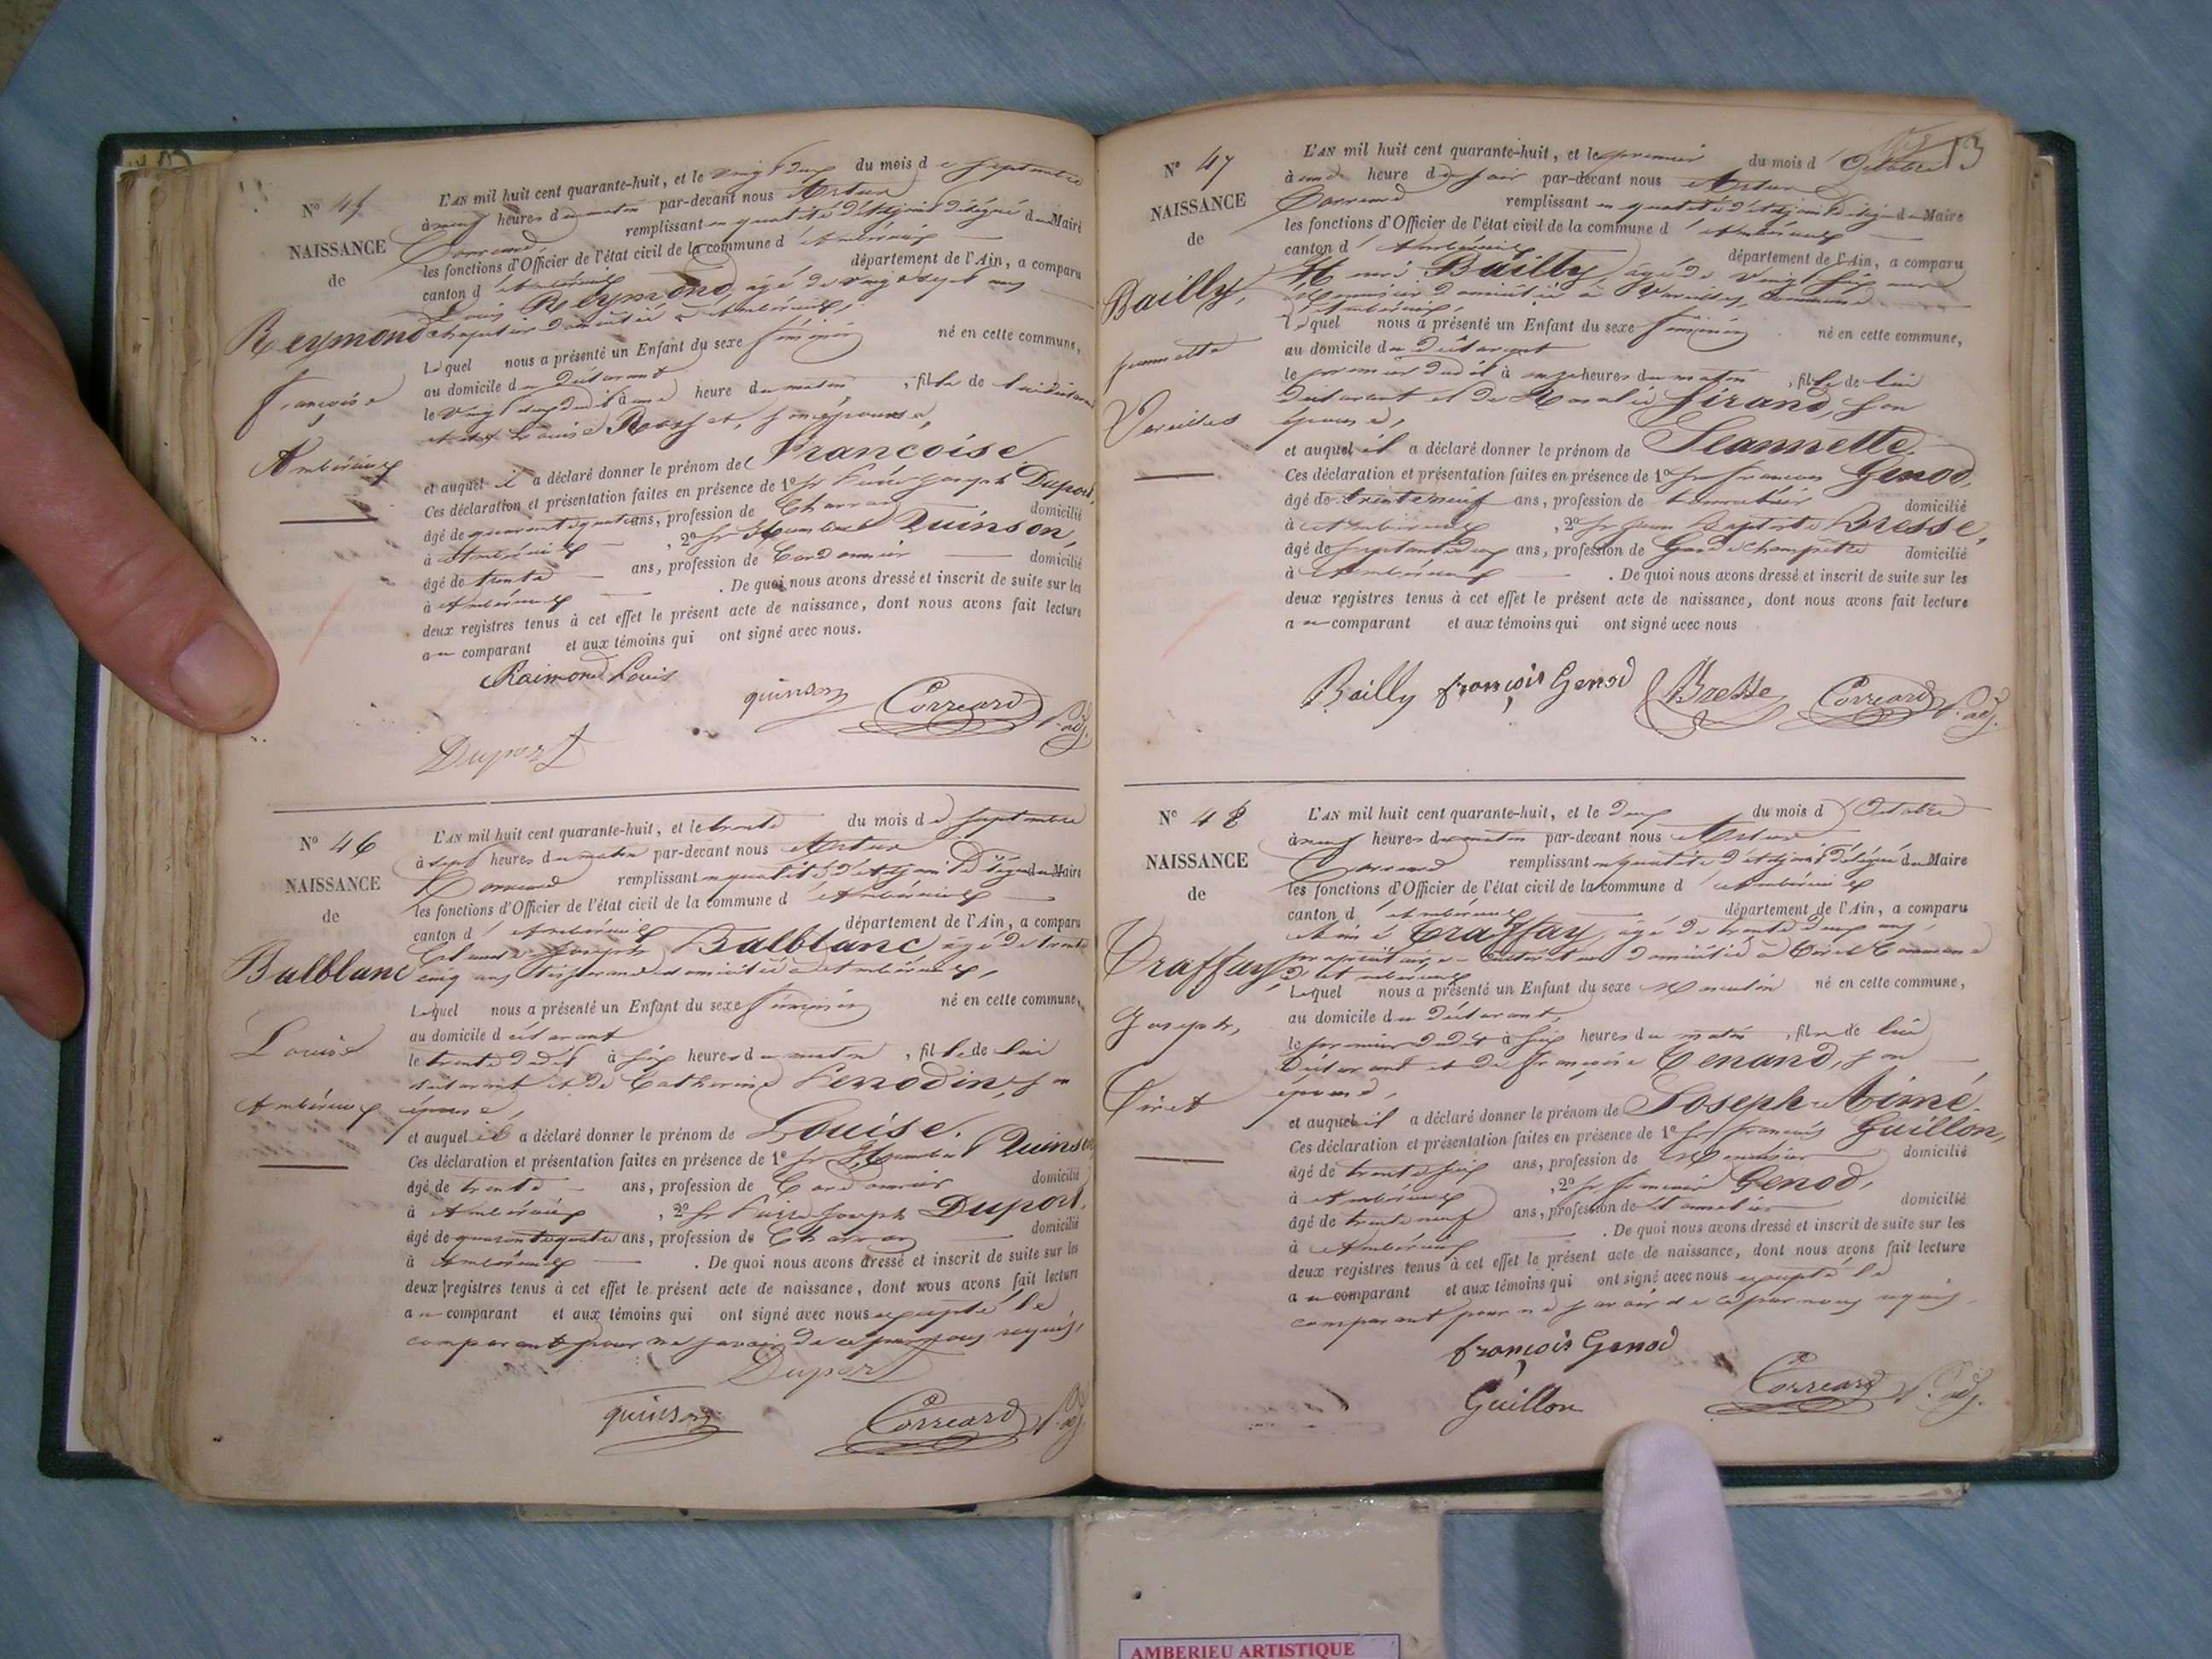 N° 45
NAISSANCE
de
Reymond
Françoise
Ambérieux
L'AN mil huit cent quarante-huit, et le du mois de septembre
à neuf heures du matin par-devant nous Artur
Correard remplissant en qualité d'Adjoint délégué du Maire
les fonctions d'Officier de l'état civil de la commune d'Ambérieux
canton d'Ambérieux département de l'Ain, a comparu
Louis Reymond, âgé de vingt sept ans
domicilié à Ambérieux,
Lequel nous a présenté un Enfant du sexe féminin né en cette commune,
au domicile du déclarant
le dudit à une heure du matin, fille de lui déclarant
et de Louise son épouse,
et auquel il a déclaré donner le prénom de Françoise
Ces déclaration et présentation faites en présence de 1° Sr Pierre Joseph Duport,
âgé de quarante quatre ans, profession de Charron domicilié
à Ambérieux, 2° Sr Quinson,
âgé de trente ans, profession de Cordonnier domicilié
à Ambérieux. De quoi nous avons dressé et inscrit de suite sur les
deux registres tenus à cet effet le présent acte de naissance, dont nous avons fait lecture
au comparant et aux témoins qui ont signé avec nous.
Raimond Louis
quinson Correard P. adj.
Duport
N° 46
NAISSANCE
de
Balblanc
Louise
Ambérieux
L'AN mil huit cent quarante-huit, et le trente du mois de septembre
à sept heures du matin par-devant nous Artur
Correard remplissant en qualité d'Adjoint Délégué du Maire
les fonctions d'Officier de l'état civil de la commune d'Ambérieux
canton d'Ambérieux département de l'Ain, a comparu
Claude Joseph Balblanc âgé de trente
cinq ans tisserand domicilié à Ambérieux,
Lequel nous a présenté un Enfant du sexe féminin né en cette commune,
au domicile déclarant
le trente dudit à six heures du matin, fille de lui
déclarant et de Catherine Perrodin, son
épouse,
et auquel il a déclaré donner le prénom de Louise.
Ces déclaration et présentation faites en présence de 1° Sr Quinson
âgé de trente ans, profession de Cordonnier domicilié
à Ambérieux, 2° Sr Pierre Joseph Duport,
âgé de quarante quatre ans, profession de Charron domicilié
à Ambérieux. De quoi nous avons dressé et inscrit de suite sur les
deux registres tenus à cet effet le présent acte de naissance, dont nous avons fait lecture
au comparant et aux témoins qui ont signé avec nous excepté le
comparant pour ne savoir de ce par nous requis,
Duport
quinson Correard P. adj
13
N° 47
NAISSANCE
de
Bailly,
Jeannette
Vareilles
L'AN mil huit cent quarante-huit, et le premier du mois d'Octobre
à une heure du soir par-devant nous Artur
Correard remplissant en qualité d'Adjoint Délégué du Maire
les fonctions d'Officier de l'état civil de la commune d'Ambérieux
canton d'Ambérieux département de l'Ain, a comparu
Bailly, âgé de vingt six ans
Menuisier domicilié à Vareilles, Commune
d'Ambérieux,
lequel nous a présenté un Enfant du sexe féminin né en cette commune,
au domicile du déclarant
le premier dudit à onze heures du matin, fille de lui
déclarant et de Rosalie Girand, son
épouse,
et auquel il a déclaré donner le prénom de Jeannette.
Ces déclaration et présentation faites en présence de 1° Sr François Genod,
âgé de trente neuf ans, profession de tonnelier domicilié
à Ambérieux, 2° Sr Jean Baptiste Bresse,
âgé de ans, profession de Garde champêtre domicilié
à Ambérieux. De quoi nous avons dressé et inscrit de suite sur les
deux registres tenus à cet effet le présent acte de naissance, dont nous avons fait lecture
au comparant et aux témoins qui ont signé avec nous
Bailly françois Genod Bresse Correard P. adj.
N° 48
NAISSANCE
de
Traffay,
Joseph,
Tiret
L'AN mil huit cent quarante-huit, et le deux du mois d'Octobre
à neuf heures du matin par-devant nous Artur
Correard remplissant en qualité d'Adjoint Délégué du Maire
les fonctions d'Officier de l'état civil de la commune d'Ambérieux
canton d'Ambérieux département de l'Ain, a comparu
Aimé Traffay, âgé de trente deux ans,
propriétaire-Cultivateur domicilié à Tiret Commune
d'Ambérieux
Lequel nous a présenté un Enfant du sexe Masculin né en cette commune,
au domicile du déclarant,
le premier dudit à six heures du matin, fils de lui
déclarant et de françoise Tenand, son
épouse,
et auquel il a déclaré donner le prénom de Joseph-Aimé.
Ces déclaration et présentation faites en présence de 1° Sr françois Guillon,
âgé de trente six ans, profession de Menuisier domicilié
à Ambérieux, 2° Sr francois Genod,
âgé de trente neuf ans, profession de tonnelier domicilié
à Ambérieux. De quoi nous avons dressé et inscrit de suite sur les
deux registres tenus à cet effet le présent acte de naissance, dont nous avons fait lecture
au comparant et aux témoins qui ont signé avec nous excepté le
comparant pour ne savoir de ce par nous requis,
françois Genod
Guillon Correard P. adj.
AMBERIEU ARTISTIQUE